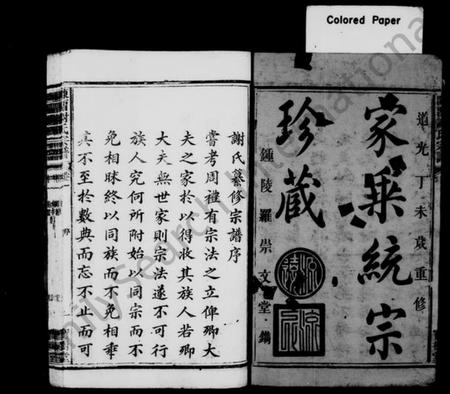 Colored Paper
道光丁未歲重修
家乘統宗
珍藏
鍾陵羅崇文堂鐫
謝氏纂修宗譜序
嘗考周禮有宗法之立俾卿大
夫之家於以得收其族人若卿
大夫無世家則宗法遂不可行
族人究何所附始以同宗而不
免相眜終以同族而不免相乖
其不至於數典而忘不止而可
FamilySearch International